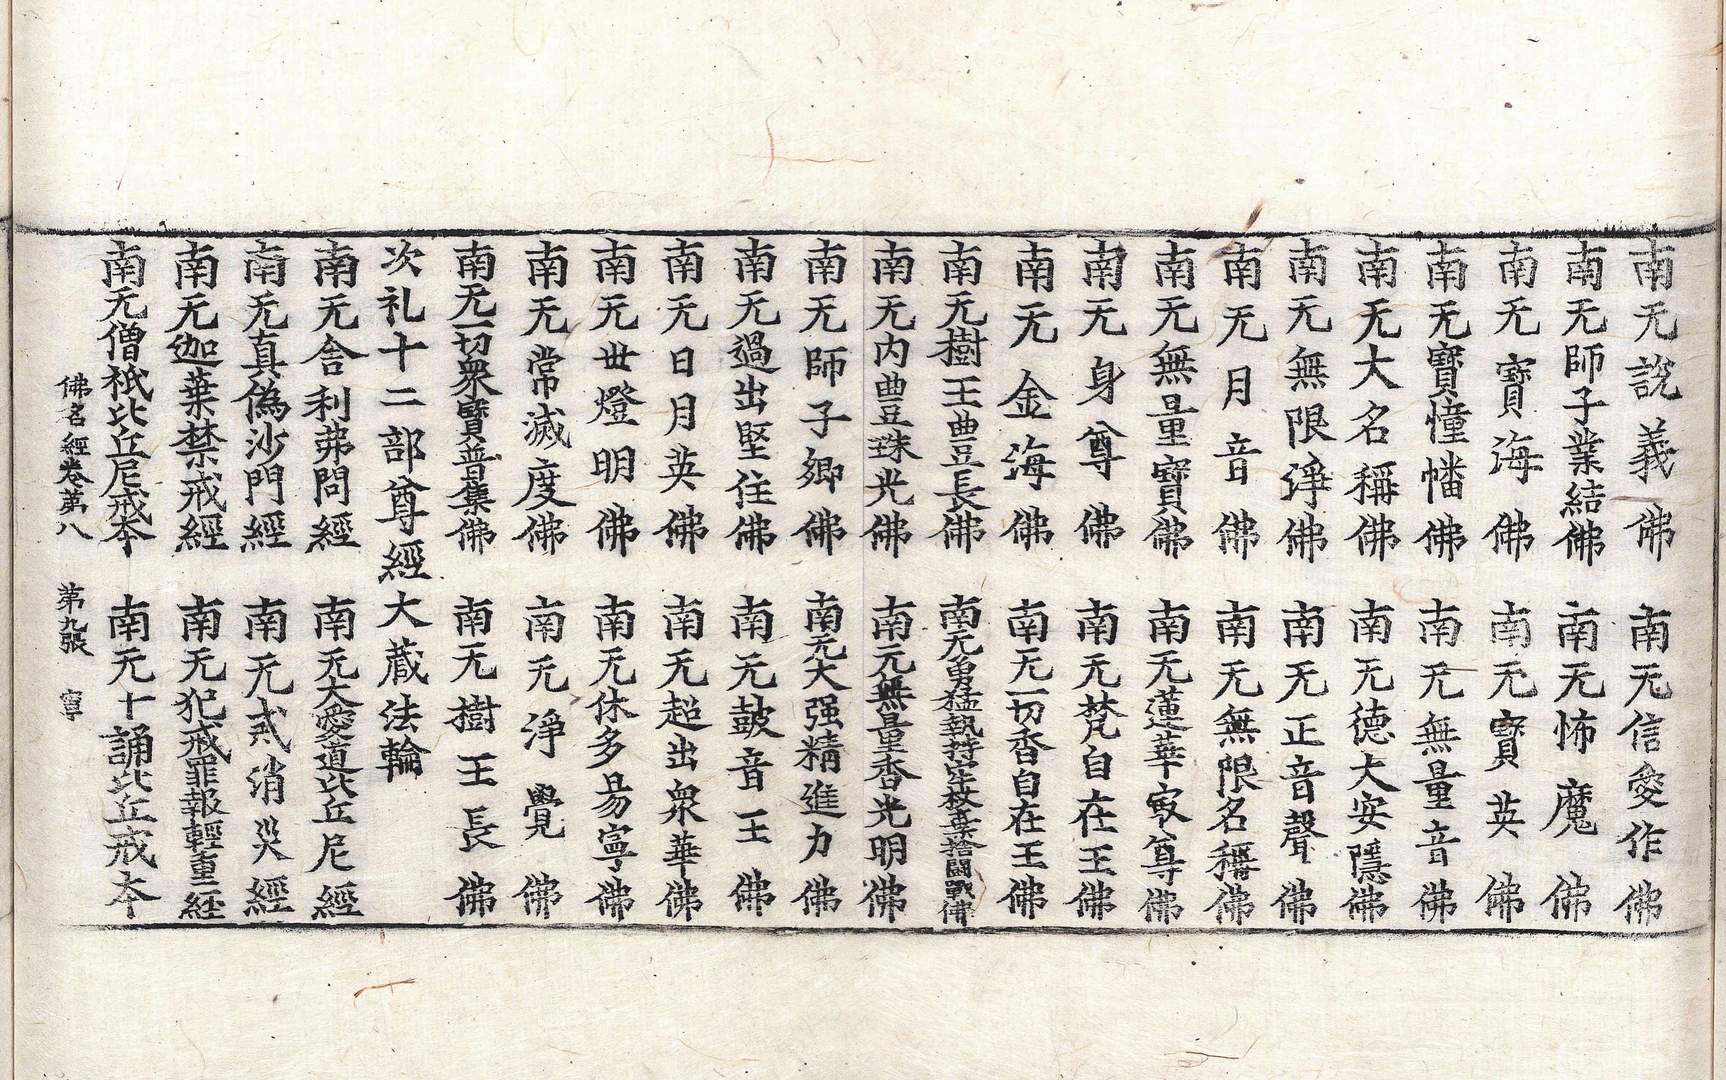 南无說義佛 南无信愛作佛
南无師子業結佛 南无怖魔佛
南无寶海佛 南无寶英佛
南无寶幢幡佛 南无無量音佛
南无大名稱佛 南无德大安隱佛
南无無限淨佛 南无正音聲佛
南无月音佛 南无無限名稱佛
南无無量寶佛 南无蓮華㝡尊佛
南无身尊佛 南无梵自在王佛
南无金海佛 南无一切香自在王佛
南无樹王豊長佛 南无勇猛執持牢杖棄捨鬪戰佛
南无内豊珠光佛 南无無量香光明佛
南无師子郷佛 南无大强精進力佛
南无過出堅住佛 南无鼓音王佛
南无日月英佛 南无超出衆華佛
南无丗燈明佛 南无休多易寧佛
南无常滅度佛 南无淨覺佛
南无一切衆寶普集佛 南无樹王長佛
次礼十二部尊經大蔵法輪
南无舎利弗問經 南无大愛道比丘尼經
南无真偽沙門經 南无貳消災經
南无伽葉禁戒經 南无犯戒罪報輕重經
南无僧祇比丘尼戒本 南无十誦比丘戒本
佛名經卷第八 第九張 寧